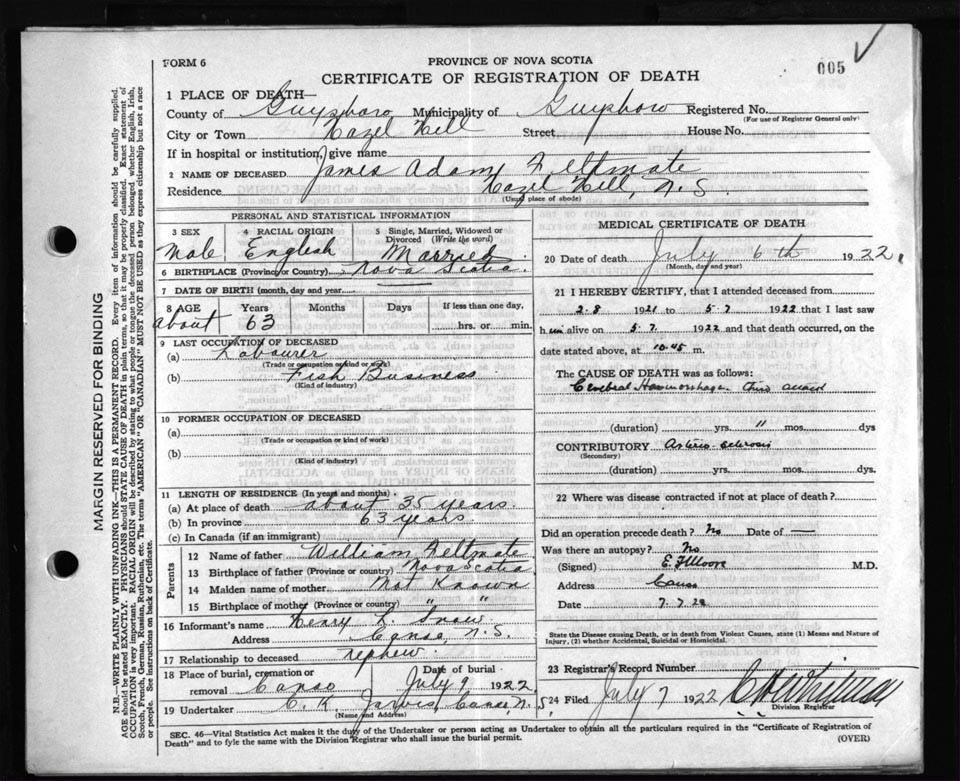 FORM 6
PROVINCE OF NOVA SCOTIA
CERTIFICATE OF REGISTRATION OF DEATH
005
1 PLACE OF DEATH—
County of Guysboro Municipality of Guysboro Registered No.
(For use of Registrar General only)
City or Town Hazel Hill Street House No.
If in hospital or institution, give name
2 NAME OF DECEASED James Adam Feltmate
Residence Hazel Hill, N. S.
(Usual place of abode)
PERSONAL AND STATISTICAL INFORMATION
3 SEX 4 RACIAL ORIGIN 5 Single, Married, Widowed or Divorced (Write the word)
Male English Married
6 BIRTHPLACE (Province or Country) Nova Scotia
7 DATE OF BIRTH (month, day and year)
8 AGE Years Months Days If less than one day,
about 63 hrs. or min.
9 LAST OCCUPATION OF DECEASED
(a) Labourer
(Trade or occupation or kind of work)
(b) Fish Business
(Kind of industry)
10 FORMER OCCUPATION OF DECEASED
(a)
(Trade or occupation or kind of work)
(b)
(Kind of industry)
11 LENGTH OF RESIDENCE (In years and months)
(a) At place of death about 35 years.
(b) In province 63 years.
(c) In Canada (if an immigrant)
Parents
12 Name of father William Feltmate
13 Birthplace of father (Province or country) Nova Scotia
14 Maiden name of mother Not Known
15 Birthplace of mother (Province or country) " "
16 Informant's name Henry L. Snow
Address Canso, N. S.
17 Relationship to deceased nephew.
18 Place of burial, cremation or removal Canso Date of burial July 9 1922.
19 Undertaker C. K. Jarvis, Canso, N. S.
(Name and Address)
MEDICAL CERTIFICATE OF DEATH
20 Date of death July 6th 1922.
(Month, day and year)
21 I HEREBY CERTIFY, that I attended deceased from
2.8 1921 to 5.7 1922 that I last saw
him alive on 5.7. 1922 and that death occurred, on the
date stated above, at 10.45 m.
The CAUSE OF DEATH was as follows:
Cerebral Haemorrhage.
(duration) yrs. " mos. dys
CONTRIBUTORY Arterio-sclerosis
(Secondary)
(duration) yrs. mos. dys.
22 Where was disease contracted if not at place of death?
Did an operation precede death? No Date of —
Was there an autopsy? No
(Signed) E. F. Moore M.D.
Address Canso
Date 7.7.22
State the Disease causing Death, or in death from Violent Causes, state (1) Means and Nature of Injury, (2) whether Accidental, Suicidal or Homicidal.
23 Registrar's Record Number
24 Filed July 7 1922 Whitman
Division Registrar
SEC. 46—Vital Statistics Act makes it the duty of the Undertaker or person acting as Undertaker to obtain all the particulars required in the "Certificate of Registration of
Death" and to fyle the same with the Division Registrar who shall issue the burial permit. (OVER)
MARGIN RESERVED FOR BINDING
N.B.—WRITE PLAINLY WITH UNFADING INK—THIS IS A PERMANENT RECORD. Every item of information should be carefully supplied.
AGE should be stated EXACTLY. PHYSICIANS should STATE CAUSE OF DEATH in plain terms, so that it may be properly classified. Exact statement of
OCCUPATION is very important. RACIAL ORIGIN will be described by stating to what people or tongue the deceased person belonged, whether English, Irish,
Scotch, French, German, Russian, Ruthenian, etc. The terms "AMERICAN" OR "CANADIAN" MUST NOT BE USED as they express citizenship but not a race
or people. See instructions on back of Certificate.